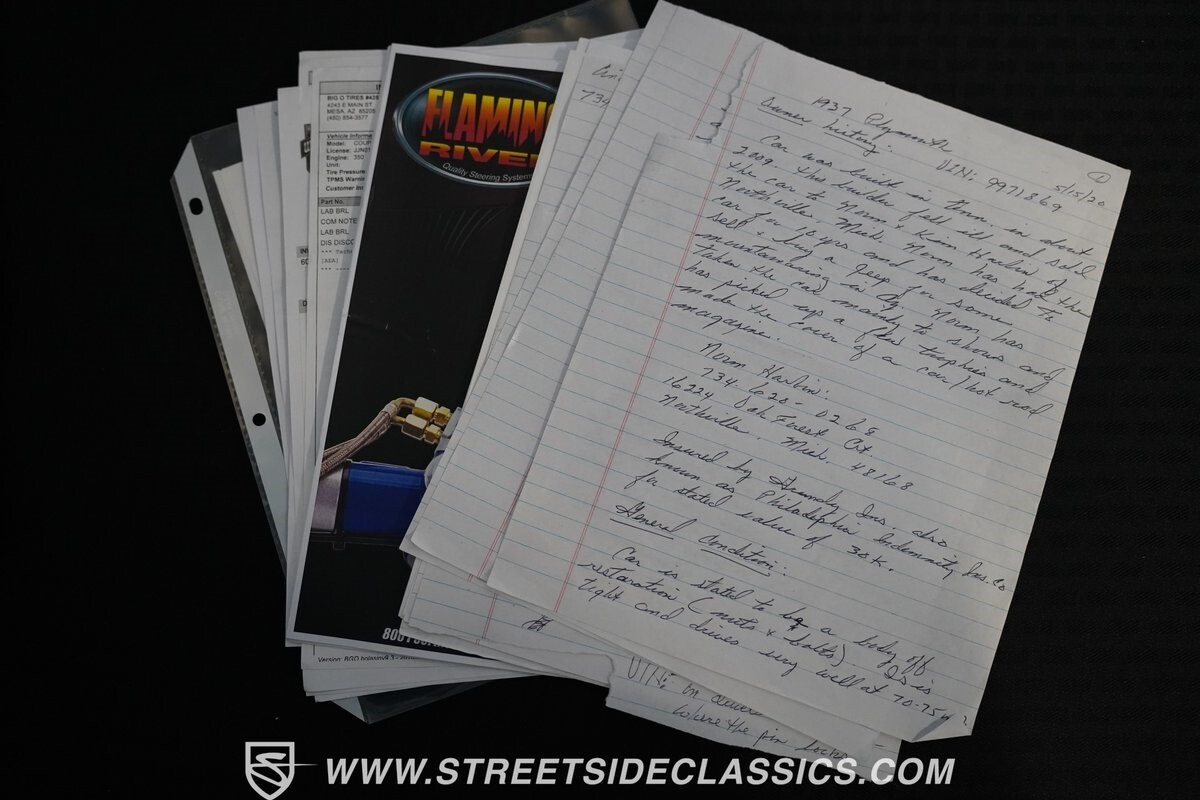 BIG O TIRES
4243 E MAIN ST
MESA, AZ 85205
(480) 854-3577
Vehicle Informa
Model: COUP
License: JJN01
Engine: 350
Unit:
Tire Pressure
TPMS Warnin
Customer Inc
Part No.
LAB BRL
COM NOTE
LAB BRL
DIS DISCO
FLAMING
RIVER
Quality Steering System
734
1937 Plymouth
①
Owner history: VIN: 9971869 5/15/20
Car was build in Penn. in about
2009. The builder fell ill, and sold
the car to Norm & Kim Harlin of
Northville, Mich. Norm has had the
car for 10 yrs and has decided to
sell & buy a Jeep for some
mountaineering in AZ. Norm has
taken the car mainly to shows and
has picked up a few trophies and
made the cover of a car/hot rod
magazine.
Norm Harlin:
734-620-0268
16224 Oak Forest Ct.
Northville, Mich. 48168
Insured by Grundy Ins. also
known as Philadelphia Indemnity Ins. Co
for stated value of 30K.
General Condition:
Car is stated to be a body off
restoration (nuts & bolts). It is
tight and drives very well at 70-75
VIN: on
where the pin
WWW.STREETSIDECLASSICS.COM